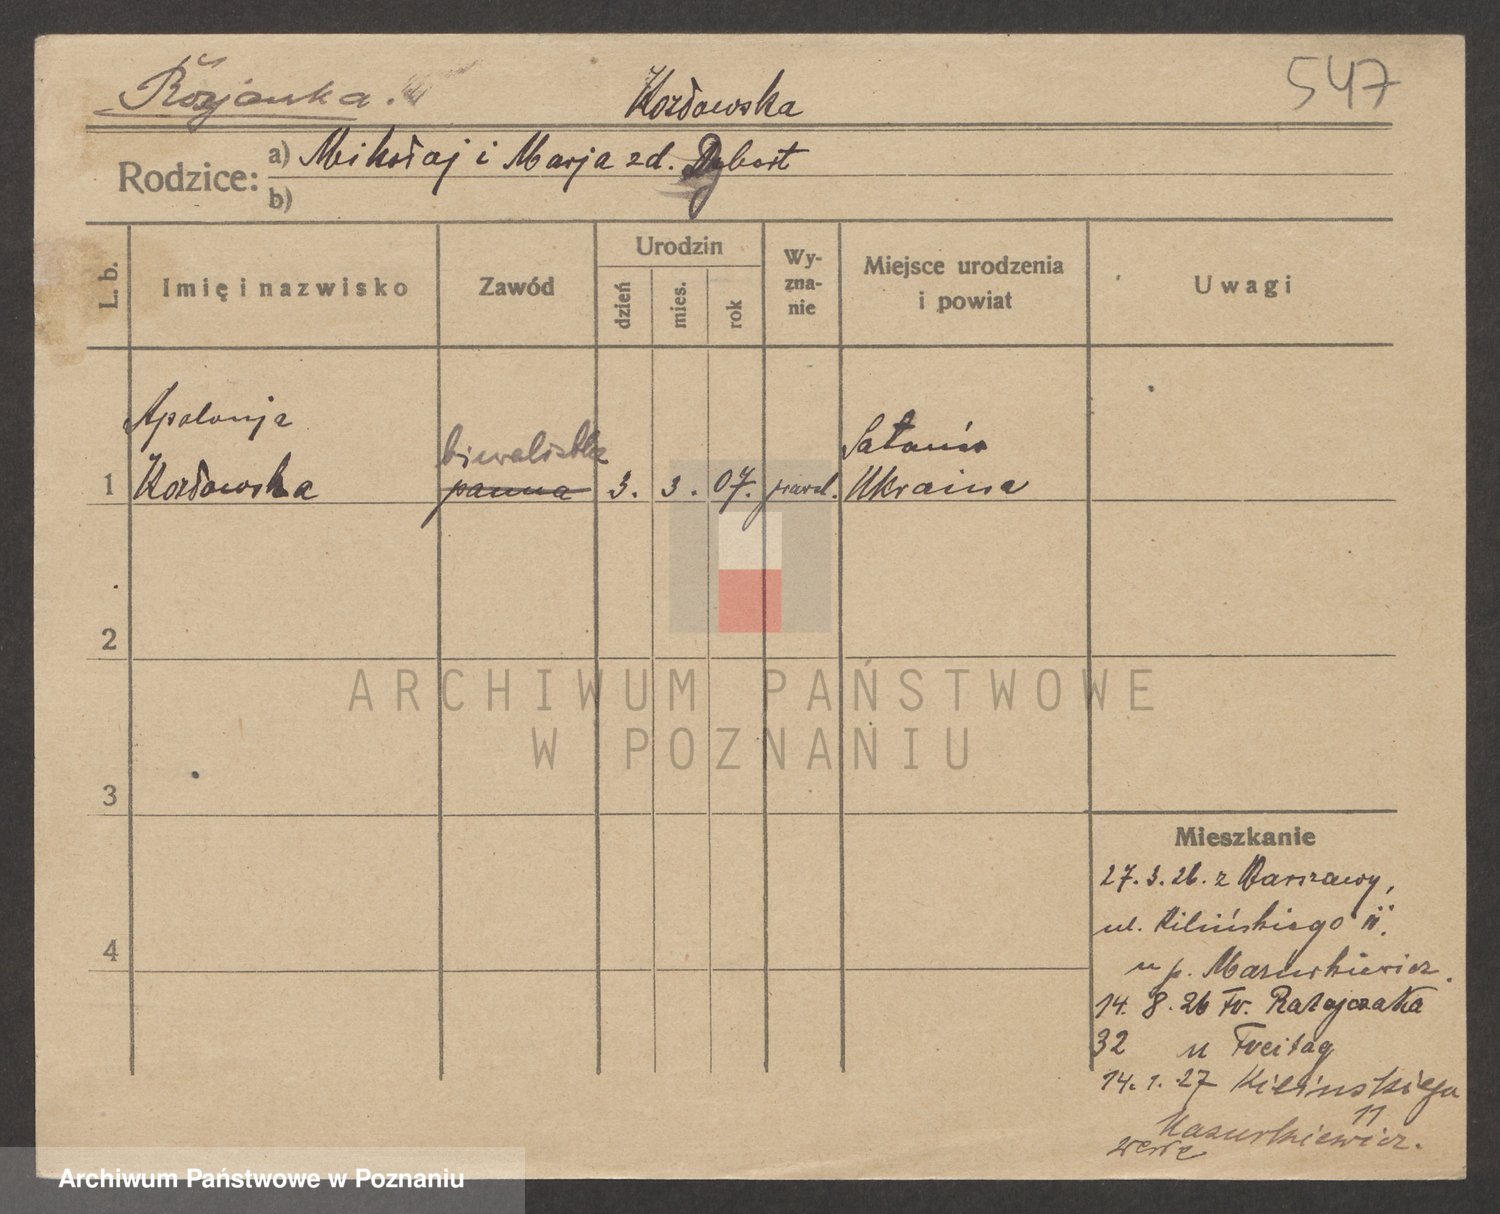 547
Kozłowska
Rodzice:
a) Mikołaj i Marja zd.
b)
L. b.
Imię i nazwisko
Zawód
Urodzin
dzień
mies.
rok
Wy-
zna-
nie
Miejsce urodzenia
i powiat
Uwagi
Apolonja
Kozłowska
1
panna
3. 3. 07. prawd.
Ukraina
2
3
4
ARCHIWUM PAŃSTWOWE
W POZNANIU
Mieszkanie
27. 3. 26. z Warszawy,
ul. Kilińskiego 11.
u p. Mazurkiewicz.
14. 8. 26 Fr. Ratajczaka
32 u Freitag
14. 1. 27 Kilinskiego
11
Mazurkiewicz.
Archiwum Państwowe w Poznaniu